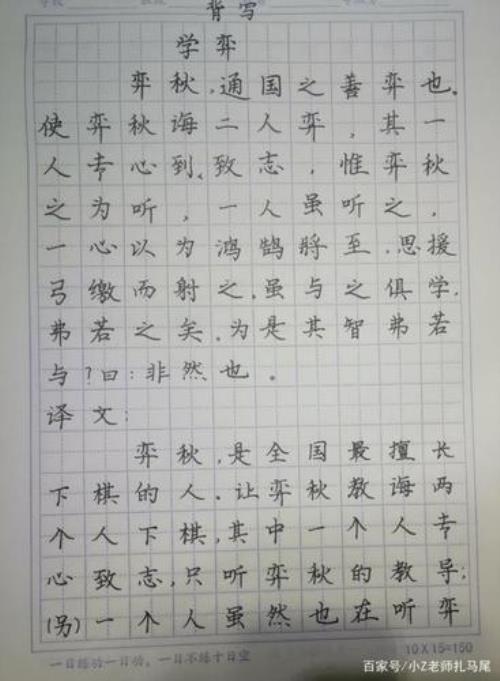 背写
学弈
弈秋,通国之善弈也。
使弈秋诲二人弈,其一
人专心到、致志,惟弈秋
之为听,一人虽听之,
一心以为鸿鹄将至,思援
弓缴而射之,虽与之俱学,
弗若之矣,为是其智弗若
与?曰:非然也。
译文:
弈秋,是全国最擅长
下棋的人,让弈秋教诲两
个人下棋,其中一个人专
心致志,只听弈秋的教导;
(另)一个人虽然也在听弈
一日练功一日功,一日不练十日空
10X15=150
百家号/小Z老师扎马尾